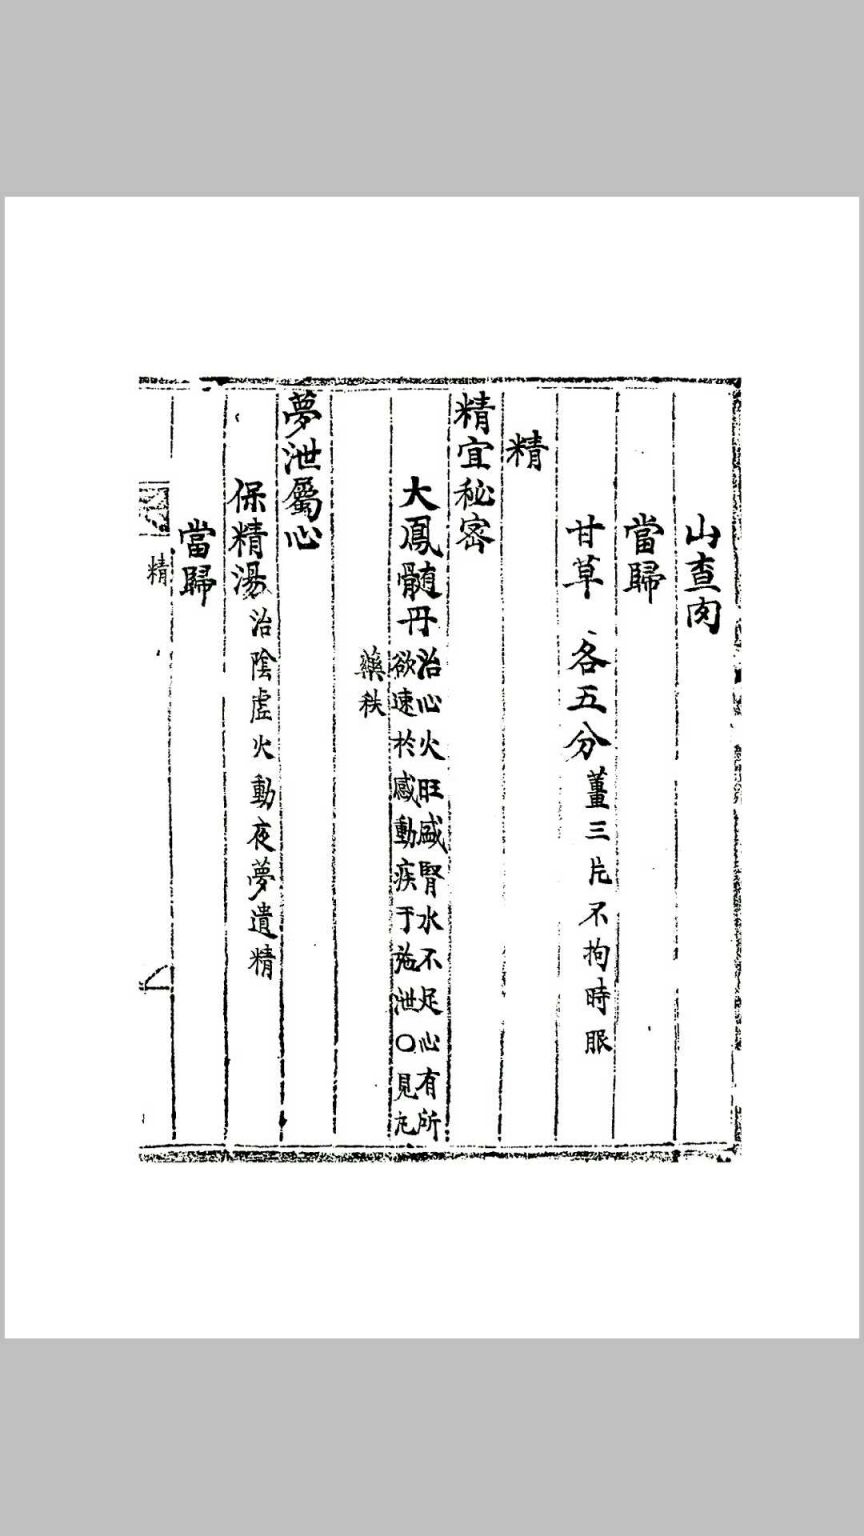 山查肉
當歸
甘草 各五分 薑三片不拘時服
精
精宜秘密
大鳳髓丹 治心火旺盛腎水不足心有所
欲速於感動疾于施泄○見丸
藥秩
夢泄屬心
保精湯 治陰虛火動夜夢遺精
當歸
精